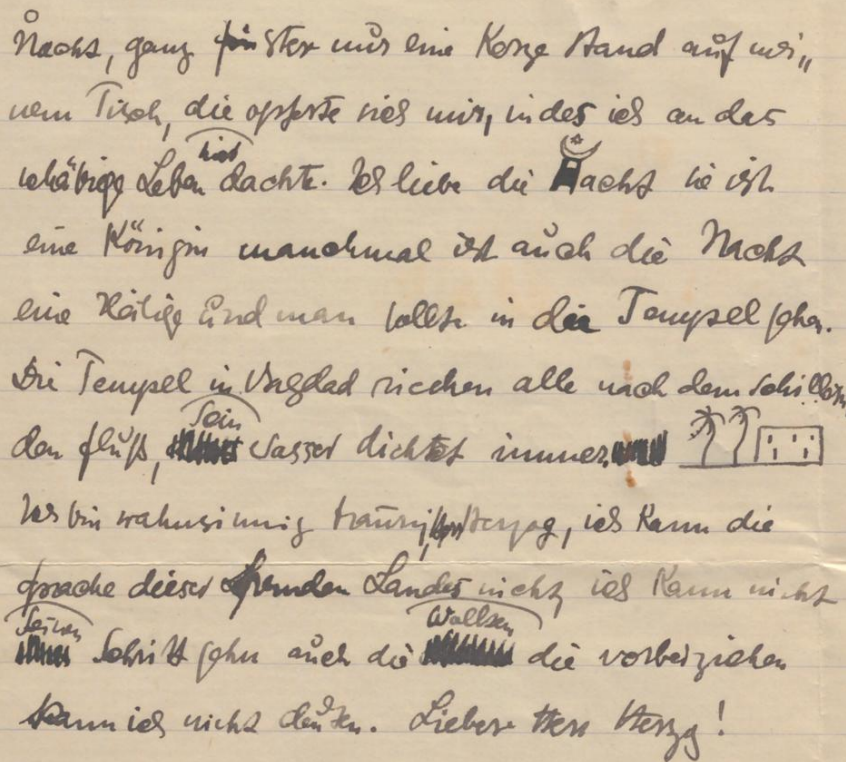 Nacht, ganz finster nur eine Kerze stand auf mei„
nem Tisch, die opferte sich mir, indes ich an das
schäbige Leben hier dachte. Ich liebe die Nacht sie ist
eine Königin manchmal ist auch die Nacht
eine Heilige und man sollte in die Tempel gehen.
Die Tempel in Bagdad riechen alle nach dem
den Fluß, Sein Wasser dichtet immer
Ich bin wahnsinnig traurig, Herzog, ich kann die
Sprache dieses fremden Landes nicht, ich kann nicht
Seinen Schritt gehn auch die Wolken die vorbeiziehen
kann ich nicht deuten. Lieber Herr Herzog!